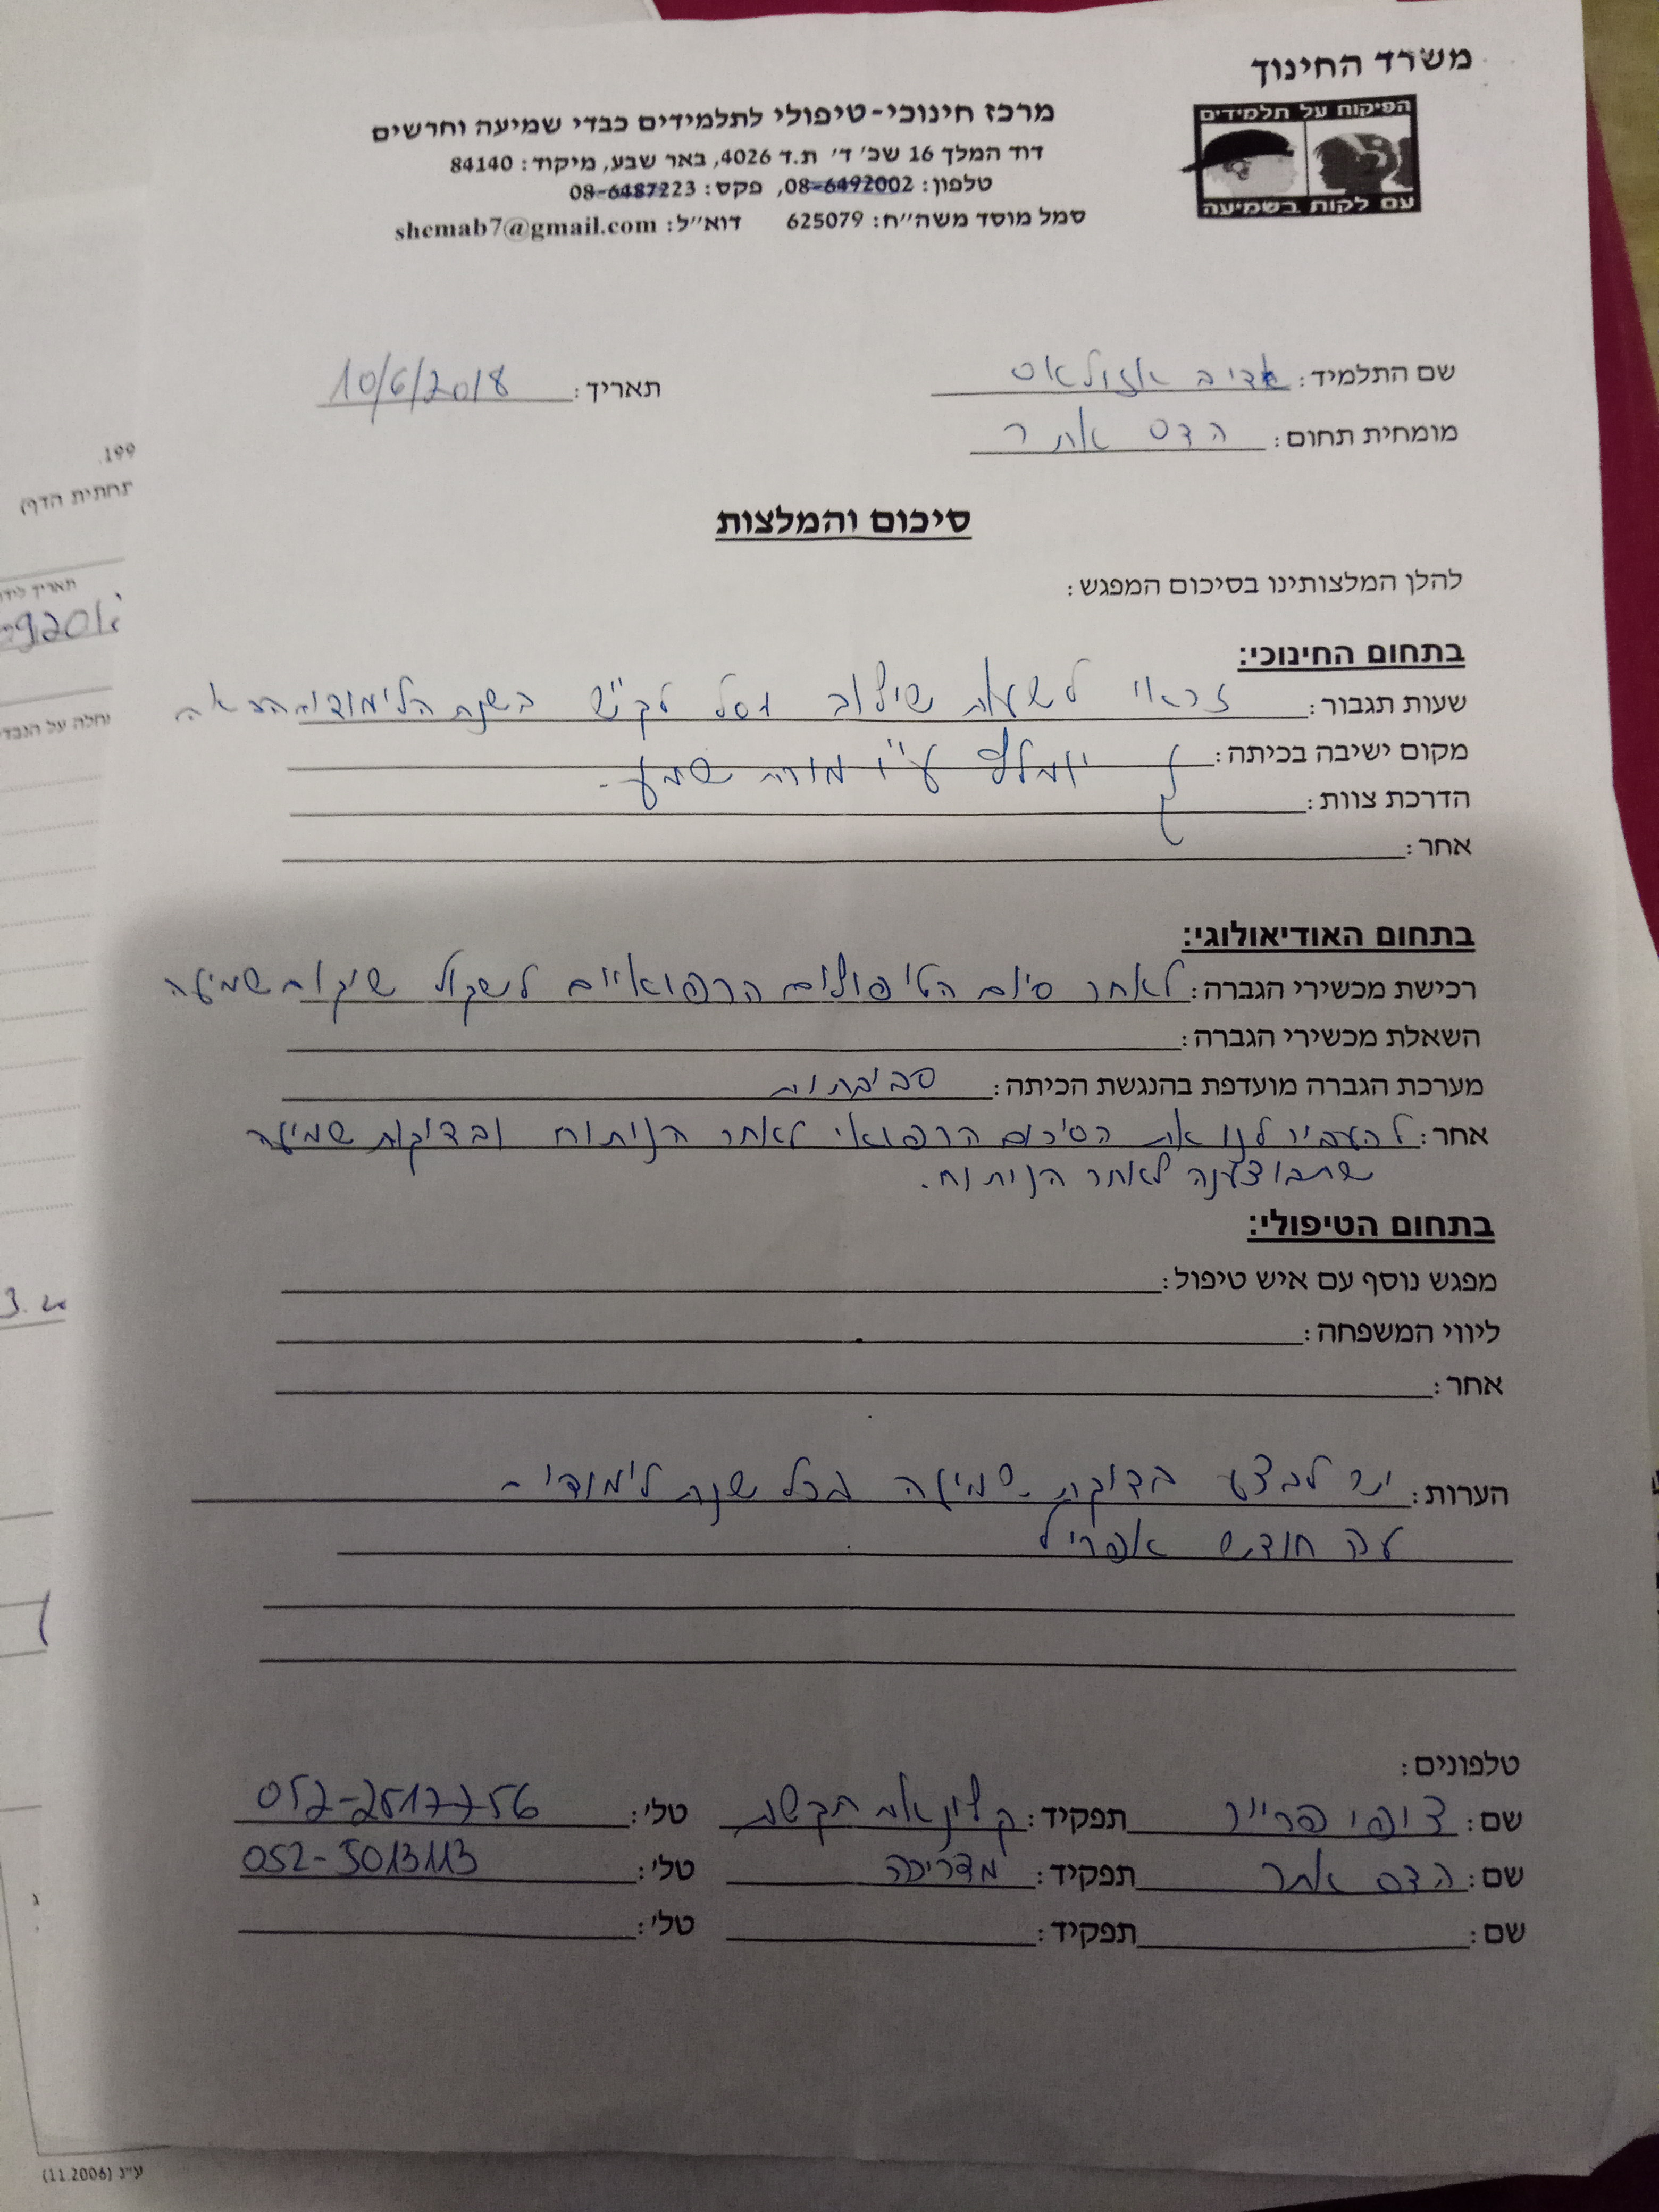 משרד החינוך
הפיקוח על תלמידים
עם לקות בשמיעה
מרכז חינוכי-טיפולי לתלמידים כבדי שמיעה וחרשים
דוד המלך 16 שכ' ד' ת.ד 4026, באר שבע, מיקוד: 84140
טלפון: 08-6492002, פקס: 08-6487223
סמל מוסד משה"ח: 625079 דוא"ל: shemab7@gmail.com
שם התלמיד: אדיב אזולאס תאריך: 10/6/2018
מומחית תחום: הדס אתר
סיכום והמלצות
להלן המלצותינו בסיכום המפגש:
בתחום החינוכי:
שעות תגבור: זכאי לשעות שילוב וסל לק"ש בשנת הלימודים הבאה
מקום ישיבה בכיתה: יומלץ ע"י מורת שמע.
הדרכת צוות:
אחר:
בתחום האודיאולוגי:
רכישת מכשירי הגברה: לאחר סיום הטיפולים הרפואיים לשקול שיקום שמיעה
השאלת מכשירי הגברה:
מערכת הגברה מועדפת בהנגשת הכיתה: סביבתית
אחר: להעביר לנו את הסיכום הרפואי לאחר הניתוח ובדיקת שמיעה
שתבוצענה לאחר הניתוח.
בתחום הטיפולי:
מפגש נוסף עם איש טיפול:
ליווי המשפחה:
אחר:
הערות: יש לבצע בדיקת שמיעה בכל שנת לימודים -
עד חודש אפריל
טלפונים:
שם: צופי פרייר תפקיד: קלינאית תקשורת טל': 052-2517756
שם: הדס אתר תפקיד: מדריכה טל': 052-5013113
שם: תפקיד: טל':
199
תחתית הדף)
תאריך ליד
ע"נ (11.2006)